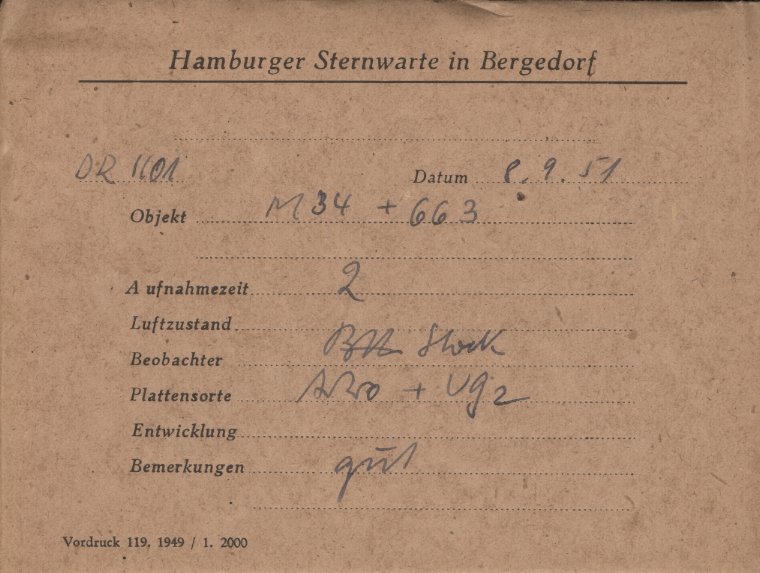 Hamburger Sternwarte in Bergedorf
DR 1101 Datum 8. 9. 51
Objekt M 34 + 663
Aufnahmezeit 2
Luftzustand
Beobachter Stock
Plattensorte + UG2
Entwicklung
Bemerkungen gut
Vordruck 119. 1949 / 1. 2000